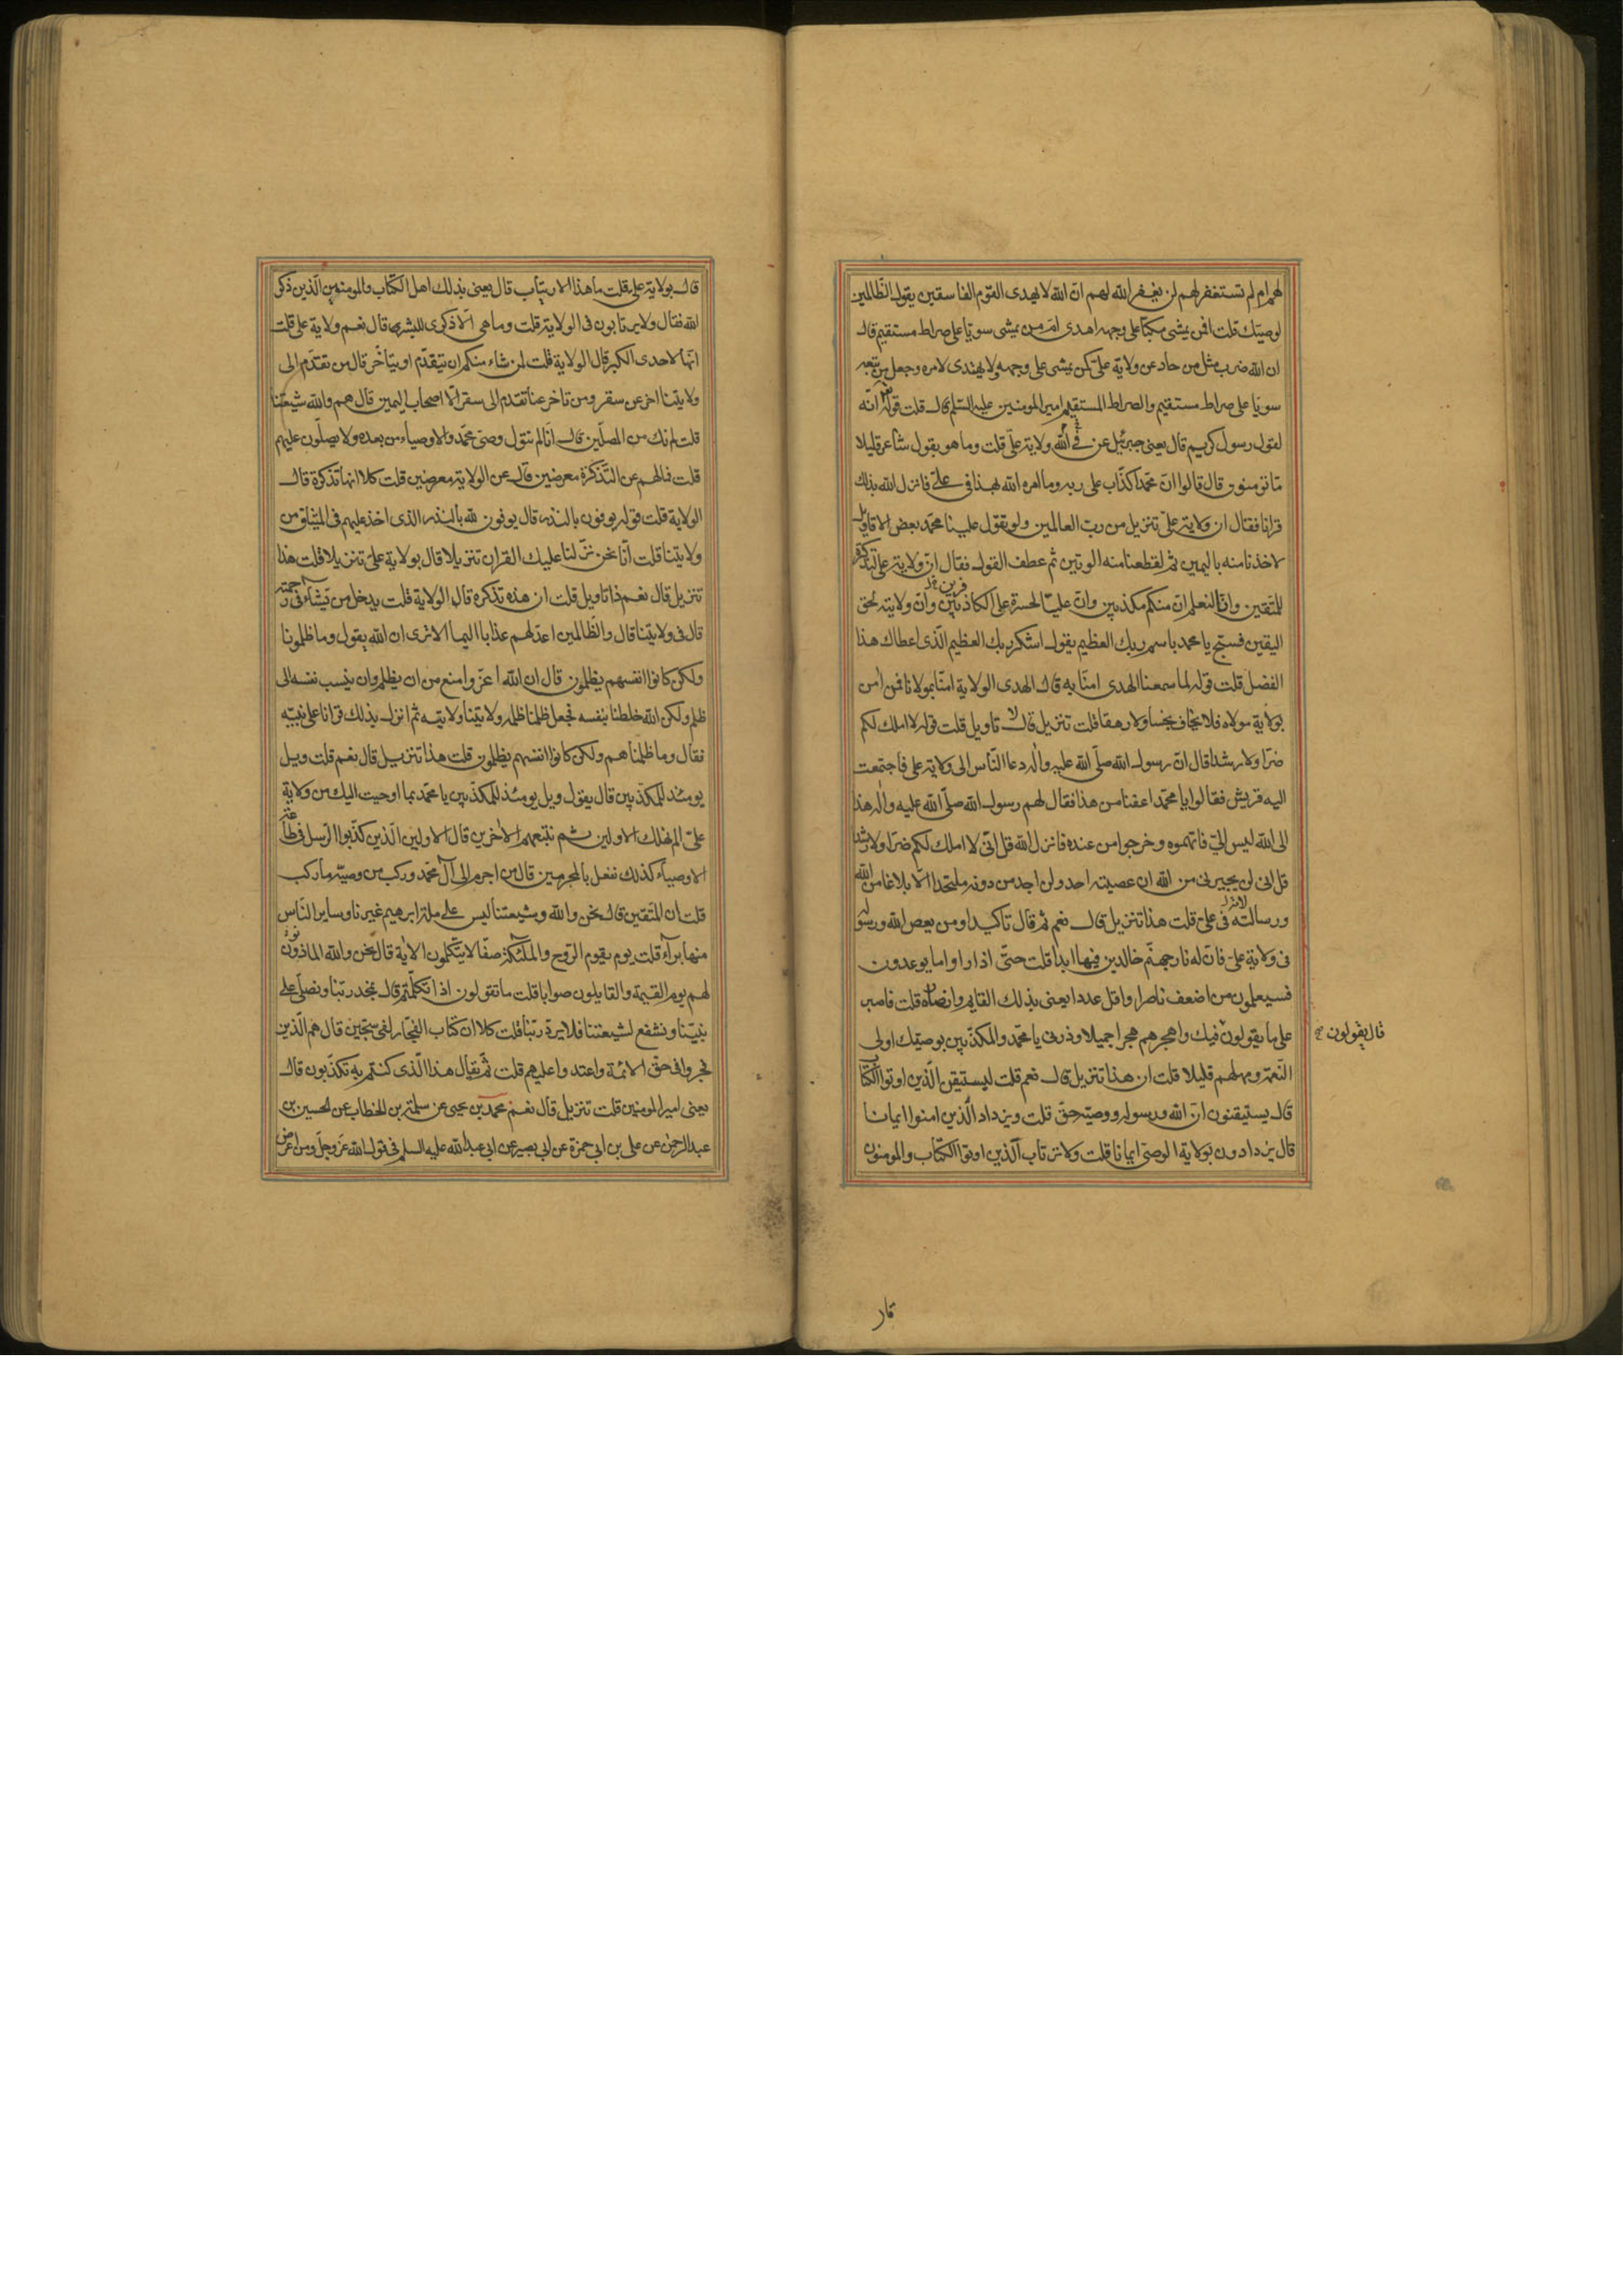 لهم ام لم تستغفر لهم لن يغفر الله لهم ان الله لا يهدى القوم الفاسقين يقول الظالمين
لوصيتك قلت افمن يمشى مكبا على وجهه اهدى امن يمشى سويا على صراط مستقيم قال
ان الله ضرب مثل من حاد عن ولاية على كمن يمشى على وجهه ولا يهتدى لامره وجعل من تبعه
سويا على صراط مستقيم والصراط المستقيم امير المومنين عليه السلم قال قلت قوله انه
لقول رسول كريم قال يعنى جبرئيل عن الله فى ولاية على قلت وما هو بقول شاعر قليلا
ما تومنون قال قالوا ان محمدا كذاب على ربه وما امره الله بهذا فى على فانزل الله بذلك
قرانا فقال ان ولاية على تنزيل من رب العالمين ولو تقول علينا محمد بعض الاقاويل
لاخذنا منه باليمين ثم لقطعنا منه الوتين ثم عطف القول فقال ان ولاية على لتذكرة
للمتقين وانا لنعلم ان منكم مكذبين وان عليا لحسرة على الكاذبين وان ولايته لحق
اليقين فسبح يا محمد باسم ربك العظيم يقول اشكر ربك العظيم الذى اعطاك هذا
الفضل قلت قوله لما سمعنا الهدى امنا به قال الهدى الولاية امنا بمولانا فمن امن
بولاية مولاه فلا يخاف بخسا ولا رهقا قلت تنزيل قال لا تاويل قلت قوله لا املك لكم
ضرا ولا رشدا قال ان رسول الله صلى الله عليه واله دعا الناس الى ولاية على فاجتمعت
اليه قريش فقالوا يا محمد اعفنا من هذا فقال لهم رسول الله صلى الله عليه واله هذا
الى الله ليس الى فاتهموه وخرجوا من عنده فانزل الله قل انى لا املك لكم ضرا ولا رشدا
قل انى لن يجيرنى من الله ان عصيته احد ولن اجد من دونه ملتحدا الا بلاغا من الله
ورسالاته فى على قلت هذا تنزيل قال نعم ثم قال تاكيدا ومن يعص الله ورسوله
فى ولاية على فان له نار جهنم خالدين فيها ابدا قلت حتى اذا راوا ما يوعدون
فسيعلمون من اضعف ناصرا واقل عددا يعنى بذلك القايم وانصاره قلت فاصبر
على ما يقولون فيك واهجرهم هجرا جميلا وذرنى يا محمد والمكذبين بوصيتك اولى
قال يقولون
النعمة ومهلهم قليلا قلت ان هذا تنزيل قال نعم قلت ليستيقن الذين اوتوا الكتاب
قال يستيقنون ان الله ورسوله ووصيه حق قلت ويزداد الذين امنوا ايمانا
قال يزدادون بولاية الوصى ايمانا قلت ولا يرتاب الذين اوتوا الكتاب والمومنون
قال بولاية على قلت ما هذا الارتياب قال يعنى بذلك اهل الكتاب والمومنين الذين ذكر
الله فقال ولا يرتابون فى الولاية قلت وما هى الا ذكرى للبشر قال نعم ولاية على قلت
انها لاحدى الكبر قال الولاية قلت لمن شاء منكم ان يتقدم او يتاخر قال من تقدم الى
ولايتنا اخر عن سقر ومن تاخر عنا تقدم الى سقر الا اصحاب اليمين قال هم والله شيعتنا
قلت لم نك من المصلين قال انا لم نتول وصى محمد والاوصياء من بعده ولا يصلون عليهم
قلت فما لهم عن التذكرة معرضين قال عن الولاية معرضين قلت كلا انها تذكرة قال
الولاية قلت قوله يوفون بالنذر قال يوفون لله بالنذر الذى اخذ عليهم فى الميثاق من
ولايتنا قلت انا نحن نزلنا عليك القران تنزيلا قال بولاية على تنزيلا قلت هذا
تنزيل قال نعم ذا تاويل قلت ان هذه تذكرة قال الولاية قلت يدخل من يشاء فى رحمته
قال فى ولايتنا قال والظالمين اعد لهم عذابا اليما الا ترى ان الله يقول وما ظلمونا
ولكن كانوا انفسهم يظلمون قال ان الله اعز وامنع من ان يظلم وان ينسب نفسه الى
ظلم ولكن الله خلطنا بنفسه فجعل ظلمنا ظلمه وولايتنا ولايته ثم انزل بذلك قرانا على نبيه
فقال وما ظلمناهم ولكن كانوا انفسهم يظلمون قلت هذا تنزيل قال نعم قلت ويل
يومئذ للمكذبين قال يقول ويل يومئذ للمكذبين يا محمد بما اوحيت اليك من ولاية
على الم نهلك الاولين ثم نتبعهم الاخرين قال الاولين الذين كذبوا الرسل فى طاعة
الاوصياء كذلك نفعل بالمجرمين قال من اجرم الى آل محمد وركب من وصيه ما ركب
قلت ان المتقين قال نحن والله وشيعتنا ليس على ملة ابرهيم غيرنا وساير الناس
منها برآء قلت يوم يقوم الروح والملئكة صفا لا يتكلمون الاية قال نحن والله الماذون
لهم يوم القيمة والقايلون صوابا قلت ما تقولون اذا تكلمتم قال نمجد ربنا ونصلى على
نبينا ونشفع لشيعتنا فلا يردنا ربنا قلت كلا ان كتاب الفجار لفى سجين قال هم الذين
فجروا فى حق الائمة واعتدوا عليهم قلت ثم يقال هذا الذى كنتم به تكذبون قال
يعنى امير المومنين قلت تنزيل قال نعم محمد بن يحيى عن سلمة بن الخطاب عن الحسين بن
عبد الرحمن عن على بن ابى حمزة عن ابى بصير عن ابى عبد الله عليه السلم فى قول الله عز وجل ومن اعرض
قار